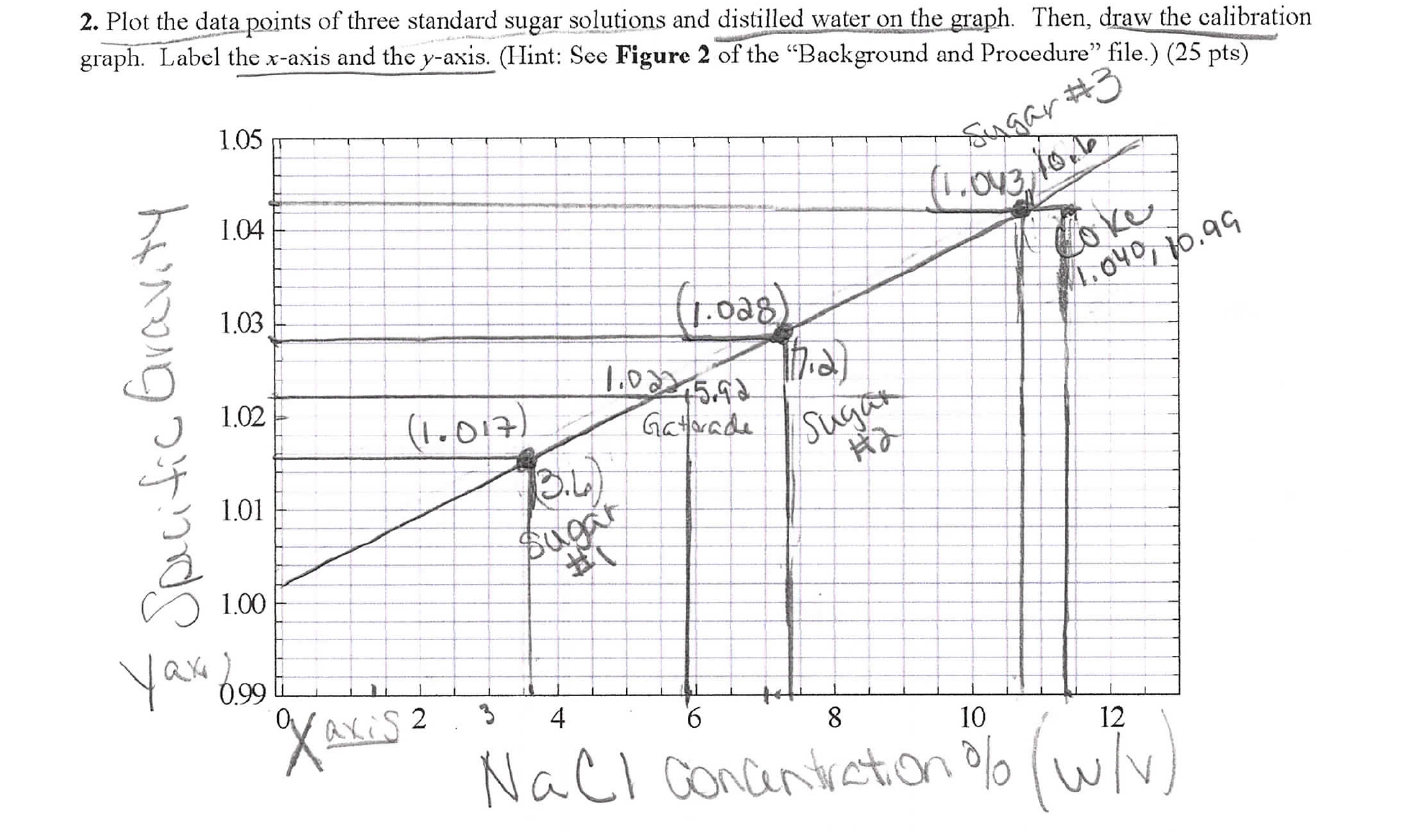 2. Plot the data points of three standard sugar solutions and distilled water on the graph. Then, draw the calibration
graph. Label the x-axis and the y-axis. (Hint: See Figure 2 of the “Background and Procedure” file.) (25 pts)
Sugar #3
(1.043, 10.6
Coke
1.040, 10.99
(1.028)
(7.2)
Sugar
#2
1.022, 5.92
Gatorade
(1.017)
(3.6)
Sugar
#1
1.05
1.04
1.03
1.02
1.01
1.00
0.99
Specific Gravity
Y axis
0 2 3 4 6 8 10 12
X axis
NaCl Concentration % (w/v)